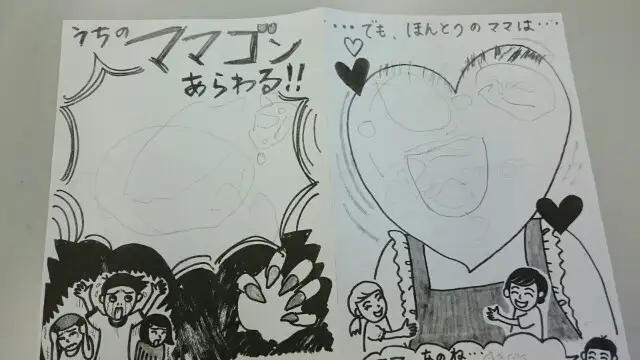 うちの
ママゴン
あらわる!!
・・・でも、ほんとうのママは・・・
ママ、あのね…